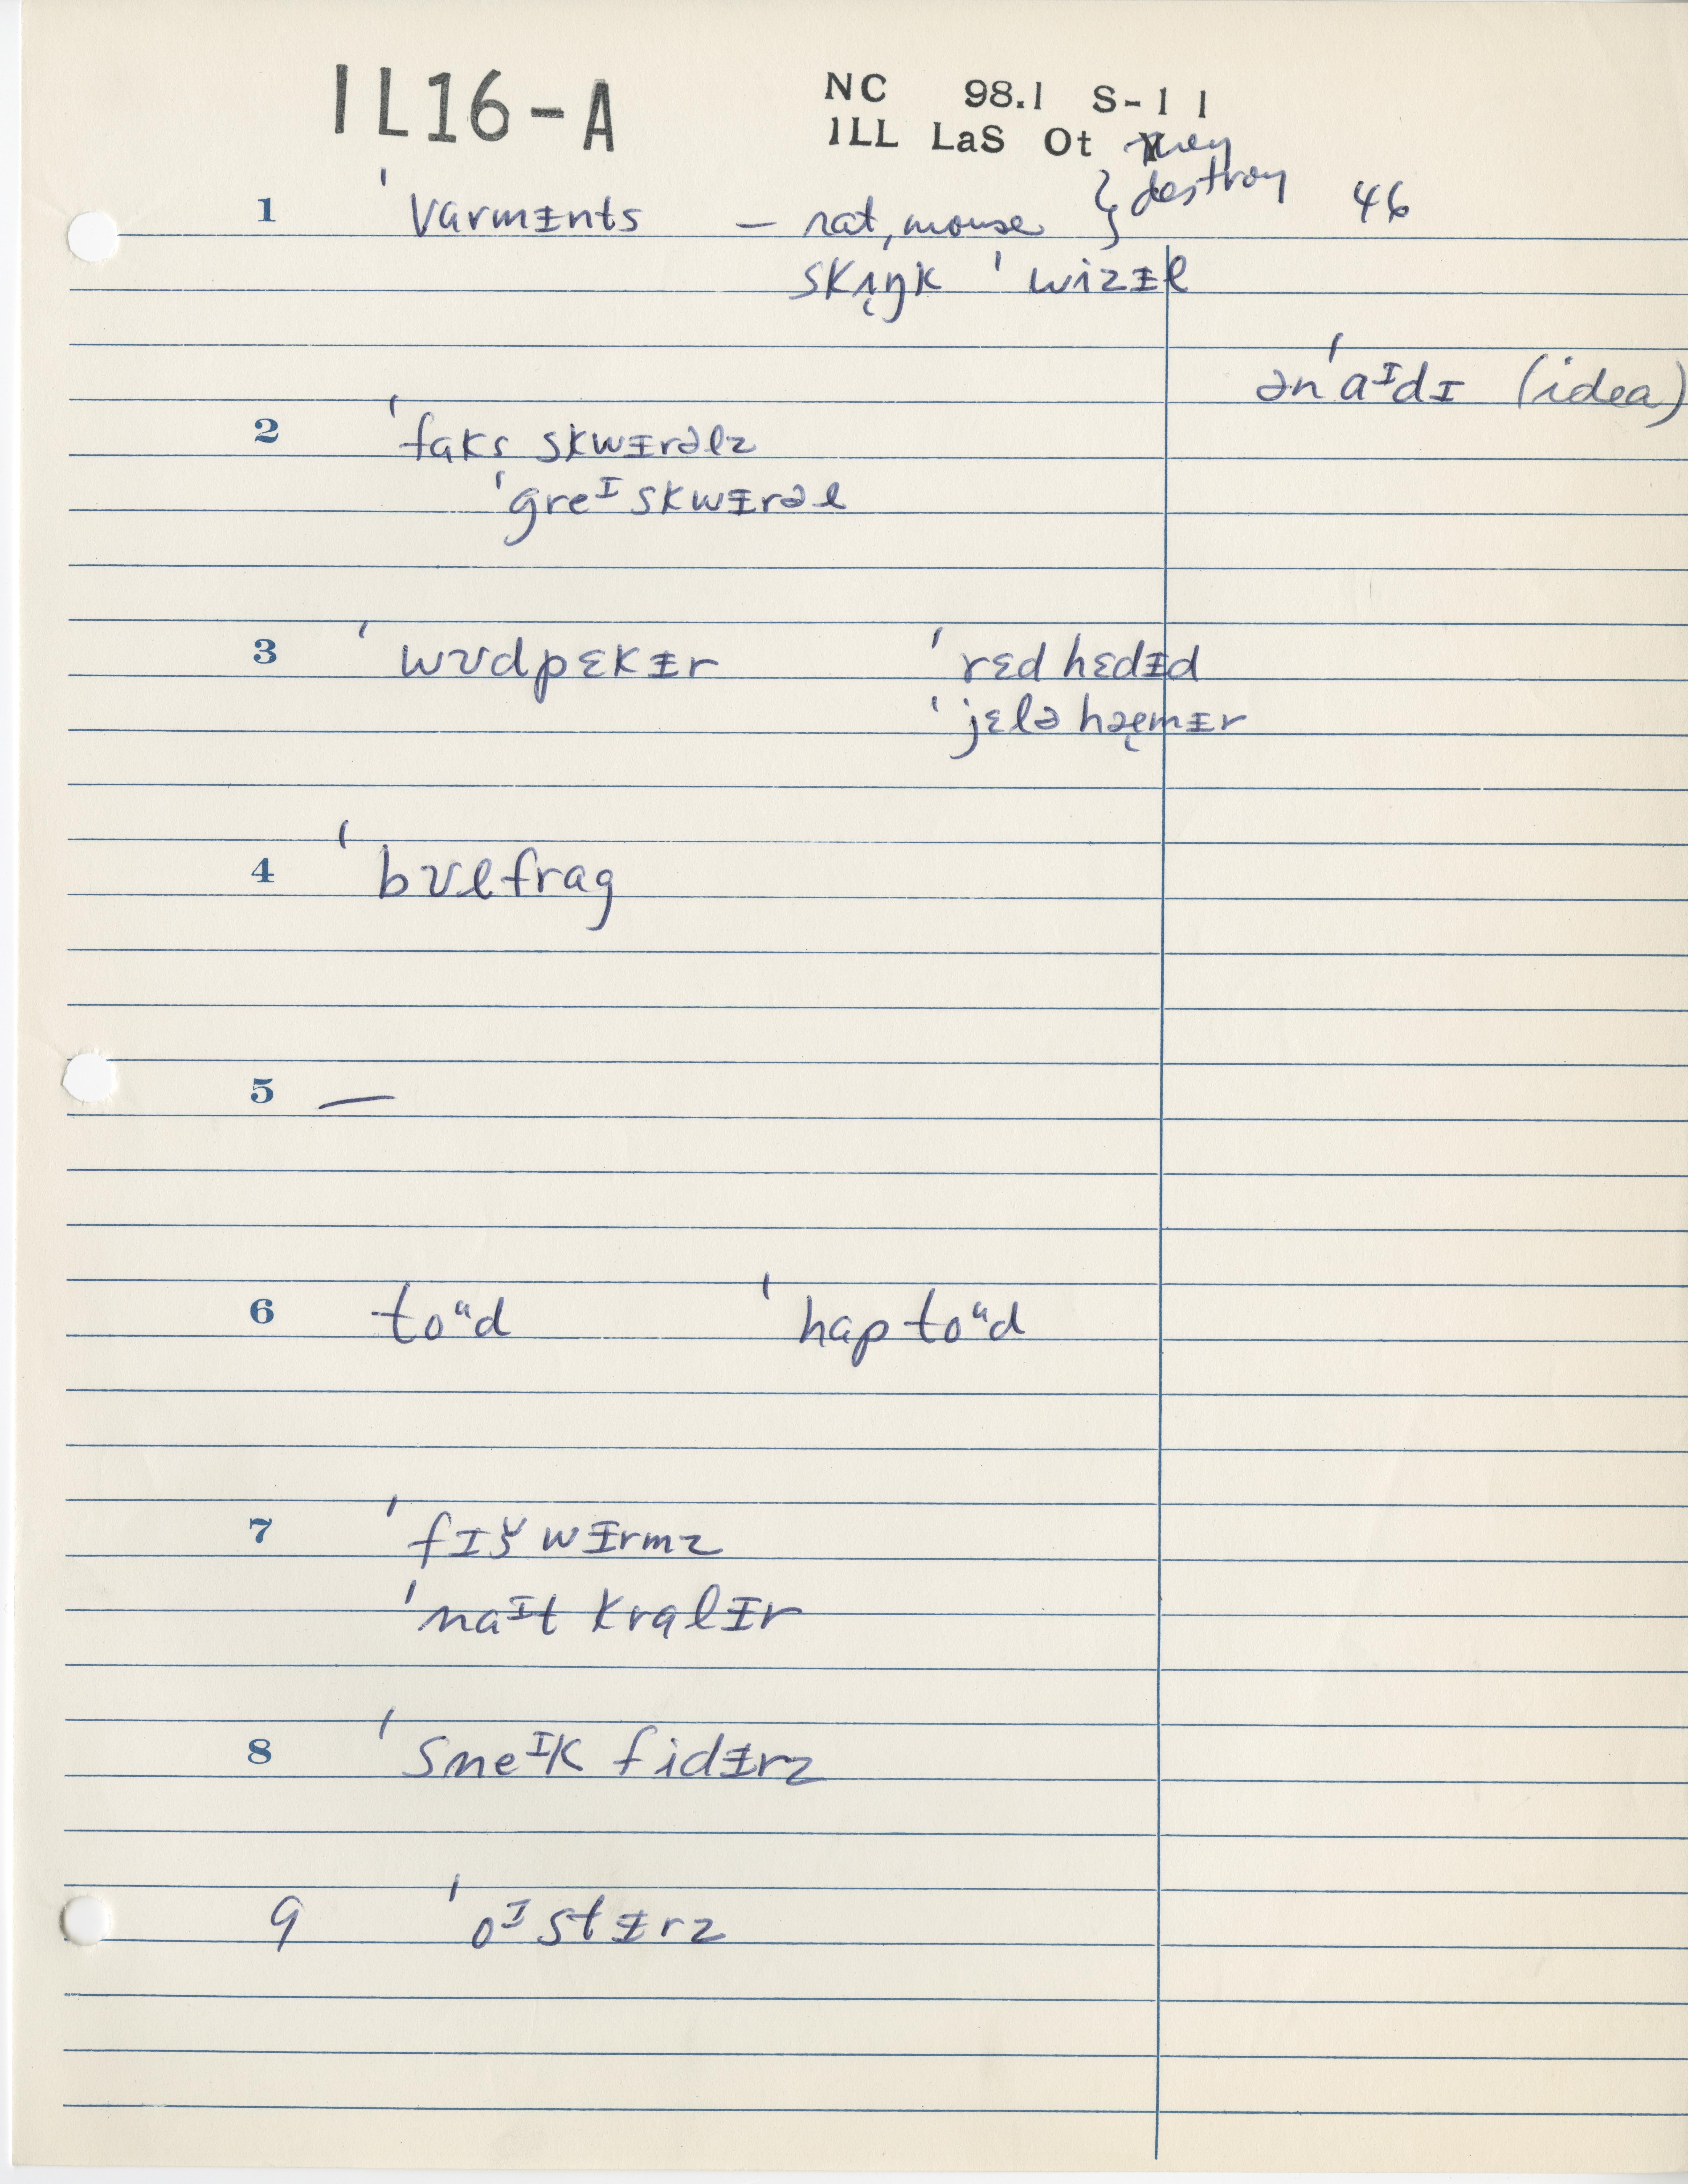 IL16-A
NC 98.1 S-11
ILL LaS Ot they
1 ˈvarmᵻnts — rat, mouse } destroy 46
skɪ̨ŋk ˈwizᵻl
ənˈaᴵdɪ (idea)
2 ˈfaks skwᵻrəlz
ˈgreᴵ skwᵻrəl
3 ˈwʊdpɛkᵻr ˈrɛd hɛdᵻd
ˈjɛlə hæ̨mᵻr
4 ˈbʊlfrag
5 —
6 toᵘd ˈhap toᵘd
7 ˈfɪš wᵻrmz
ˈnaᴵt kralᵻr
8 ˈsneᴵk fidᵻrz
9 ˈoᴵstᵻrz